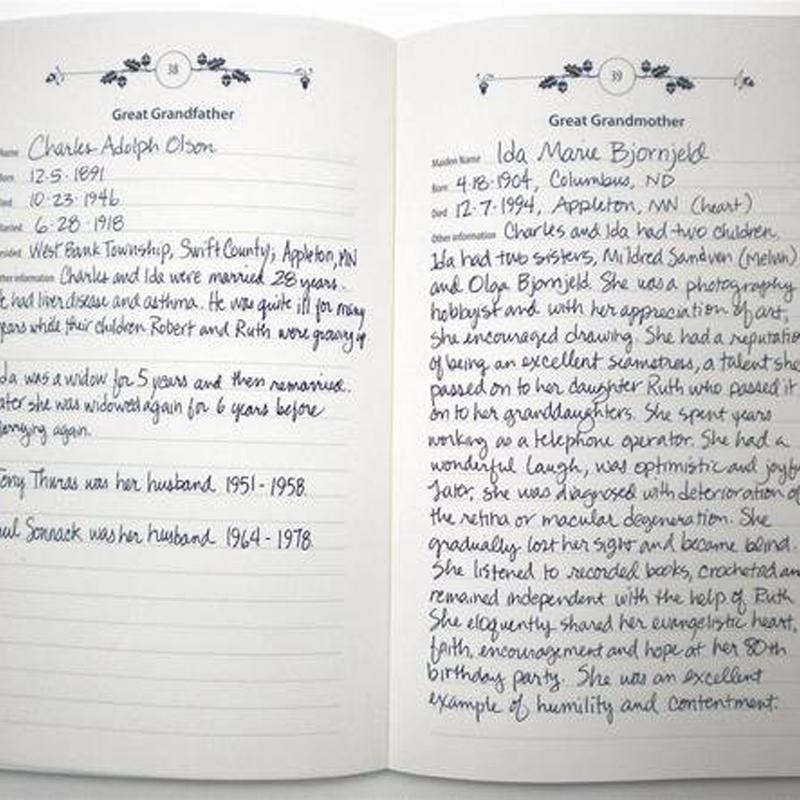 38
Great Grandfather
Name Charles Adolph Olson
Born 12·5·1891
Died 10·23·1946
Married 6·28·1918
Resided West Bank Township, Swift County; Appleton, MN
Other information Charles and Ida were married 28 years.
He had liver disease and asthma. He was quite ill for many
years while their children Robert and Ruth were growing up
Ida was a widow for 5 years and then remarried.
Later she was widowed again for 6 years before
marrying again.
Tony Thuras was her husband 1951-1958.
Paul Sonnack was her husband 1964-1978.
39
Great Grandmother
Maiden Name Ida Marie Bjornjeld
Born 4·18·1904, Columbus, ND
Died 12·7·1994, Appleton, MN (heart)
Other information Charles and Ida had two children.
Ida had two sisters, Mildred Sandven (Melvin)
and Olga Bjornjeld. She was a photography
hobbyist and with her appreciation of art,
she encouraged drawing. She had a reputation
of being an excellent seamstress, a talent she
passed on to her daughter Ruth who passed it
on to her granddaughters. She spent years
working as a telephone operator. She had a
wonderful laugh, was optimistic and joyful.
Later, she was diagnosed with deterioration of
the retina or macular degeneration. She
gradually lost her sight and became blind.
She listened to recorded books, crocheted and
remained independent with the help of Ruth
She eloquently shared her evangelistic heart,
faith, encouragement and hope at her 80th
birthday party. She was an excellent
example of humility and contentment.